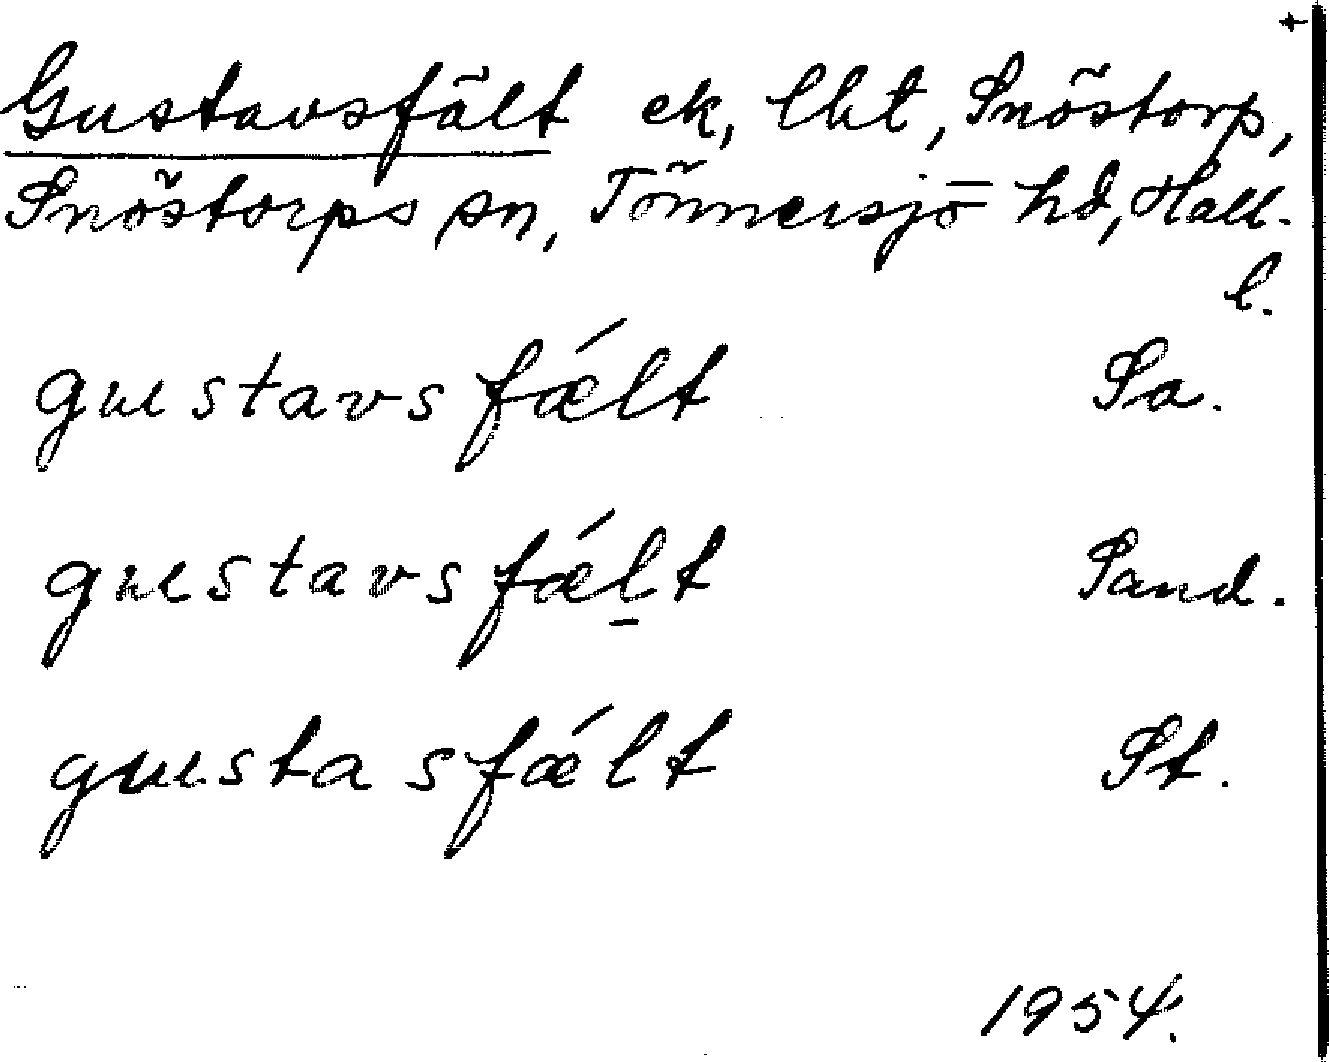 +
Gustavsfält ek, lht, Snöstorp,
Snöstorps sn, Tönnersjö hd, Hall.
l.
gustavsfǽlt Sa.
gustavsfǽl̠t Sand.
gustasfǽlt St.
1954.